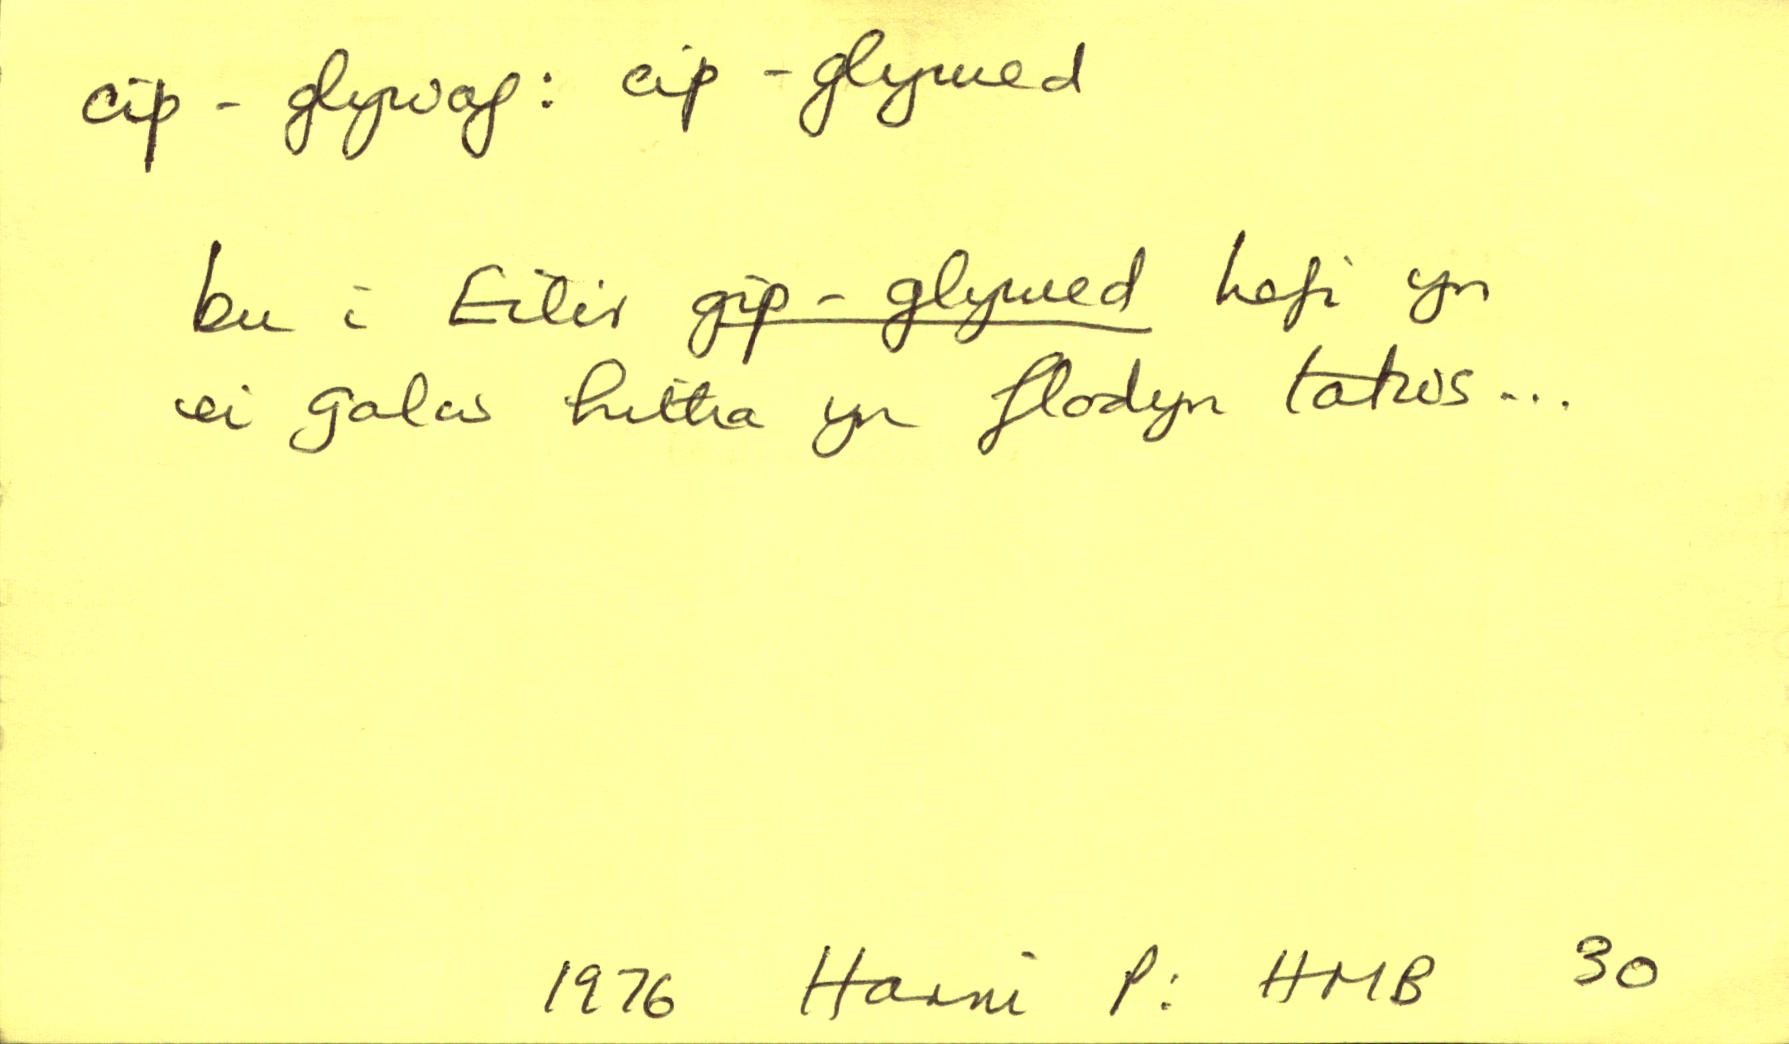 cip-glywaf: cip-glywed
bu i Eilir gip-glywed hefi yn
ei galw hitha yn flodyn tatws...
1976 Harri P: HMB 30